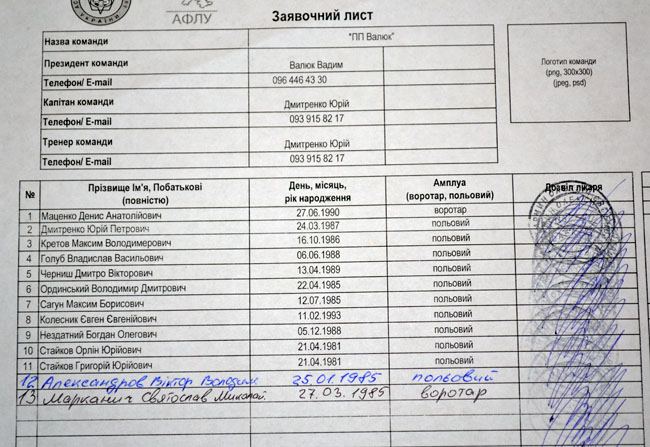 АФЛУ
Заявочний лист
Назва команди "ПП Валюк"
Президент команди Валюк Вадим
Телефон/ E-mail 096 446 43 30
Капітан команди Дмитренко Юрій
Телефон/ E-mail 093 915 82 17
Тренер команди Дмитренко Юрій
Телефон/ E-mail 093 915 82 17
Логотип команди
(png, 300x300)
(jpeg, psd)
№ Прізвище Ім'я, Побатькові (повністю) День, місяць, рік народження Амплуа (воротар, польовий) Дозвіл лікаря
1 Маценко Денис Анатолійович 27.06.1990 воротар
2 Дмитренко Юрій Петрович 24.03.1987 польовий
3 Кретов Максим Володимерович 16.10.1986 польовий
4 Голуб Владислав Васильович 06.06.1988 польовий
5 Черниш Дмитро Вікторович 13.04.1989 польовий
6 Ординський Володимир Дмитрович 22.04.1985 польовий
7 Сагун Максим Борисович 12.07.1985 польовий
8 Колесник Євген Євгенійович 11.02.1993 польовий
9 Нездатний Богдан Олегович 05.12.1988 польовий
10 Стайков Орлін Юрійович 21.04.1981 польовий
11 Стайков Григорій Юрійович 21.04.1981 польовий
12 Александров Віктор Володим 25.01.1985 польовий
13 Марканич Святослав Миколай 27.03.1985 воротар